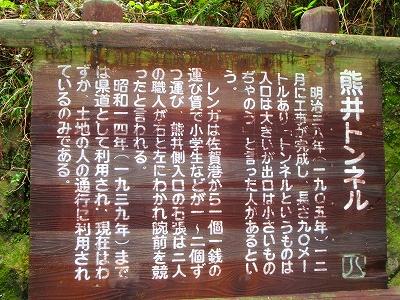 熊井トンネル
明治三八年（一九〇五年）一二
月に工事が完成し、長さ九〇メー
トルあり、「トンネルというものは
入口は大きいが出口は小さいもの
ぢゃのう」と言った人があるとい
う。
レンガは佐賀港から一個一銭の
運び賃で小学生などが一～二個ず
つ運び、熊井側入口の石張は二人
の職人が右と左にわかれ腕前を競
ったと言われる。
昭和一四年（一九三九年）まで
は県道として利用され、現在はわ
ずか、土地の人の通行に利用され
ているのみである。